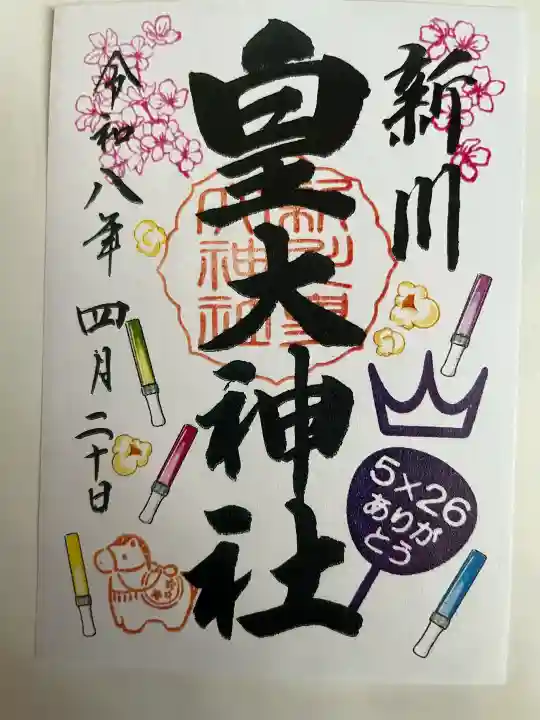 新川
皇大神社
令和八年 四月二十日
5×26
ありが
とう